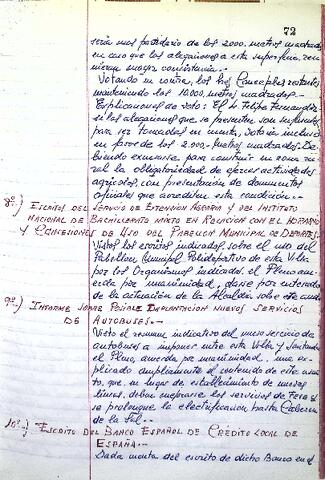 72
sería mas partidario de los 2000. metros cuadrados
en caso que las alegaciones a esta superficie, tu-
vieran mayor consistencia.-
Votando en contra, los tres Concejales restantes
manteniendo los 10.000. metros cuadrados.-
Explicaciones de voto: El Sr. Felipe Fernandez,
si las alegaciones que se presenten son suficientes
para ser tomadas en cuenta, votaria incluso
en favor de los 2.000.- metros cuadrados. De-
biendo exigirse para construir en zona ru-
ral la obligatoriedad de ejercer actividades
agricolas, con presentación de documentos
oficiales que acrediten esta condición.-
8º.) ESCRITOS DEL SERVICIO DE EXTENSION AGRARIA Y DEL INSTITUTO
NACIONAL DE BACHILLERATO MIXTO EN RELACION CON EL HORARIO
Y CONDICIONES DE USO DEL PABELLON MUNICIPAL DE DEPORTES.-
Vistos los escritos indicados, sobre el uso del
Pabellon Municipal Polideportivo de esta Villa
por los Organismos indicados, el Pleno acu-
erda por unanimidad, darse por enterado
de la actuación de la Alcaldia sobre este asunto
9º.) INFORME SOBRE POSIBLE IMPLANTACION NUEVOS SERVICIOS
DE AUTOBUSES.-
Visto el resumen indicativo del nuevo servicio de
autobuses a imponer entre esta Villa y Santander
el Pleno, acuerda por unanimidad, una vez ex-
plicado ampliamente el contenido de este asun-
to, que, en lugar de establecimiento de nuevas
lineas, deben mejorarse los servicios de Feve y
se prolongue la electrificación hasta Cabezon
de la Sal.-
10º.) ESCRITO DEL BANCO ESPAÑOL DE CRÉDITO LOCAL DE
ESPAÑA.-
Dada cuenta del escrito de dicho Banco en el